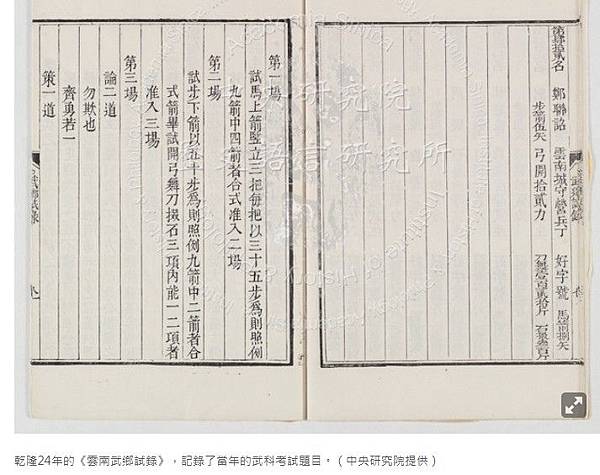 第肆拾貳名 鄭聯詔 雲南城守營兵丁 好字號 馬箭捌矢
步箭伍矢 弓開拾貳力 刀舞壹百貳拾斤 石掇叁百斤
第一場
試馬上箭豎立三把每把以三十五步爲則照例
九箭中四箭者合式准入二場
第二場
試步下箭以五十步爲則照例九箭中二箭者合
式箭畢試開弓舞刀掇石三項內能一二項者
准入三場
第三場
論二道
勿欺也
齊勇若一
策一道
武鄉試錄
研究院
語言研究所
Academia Sinica
乾隆24年的《雲南武鄉試錄》，記錄了當年的武科考試題目。（中央研究院提供）